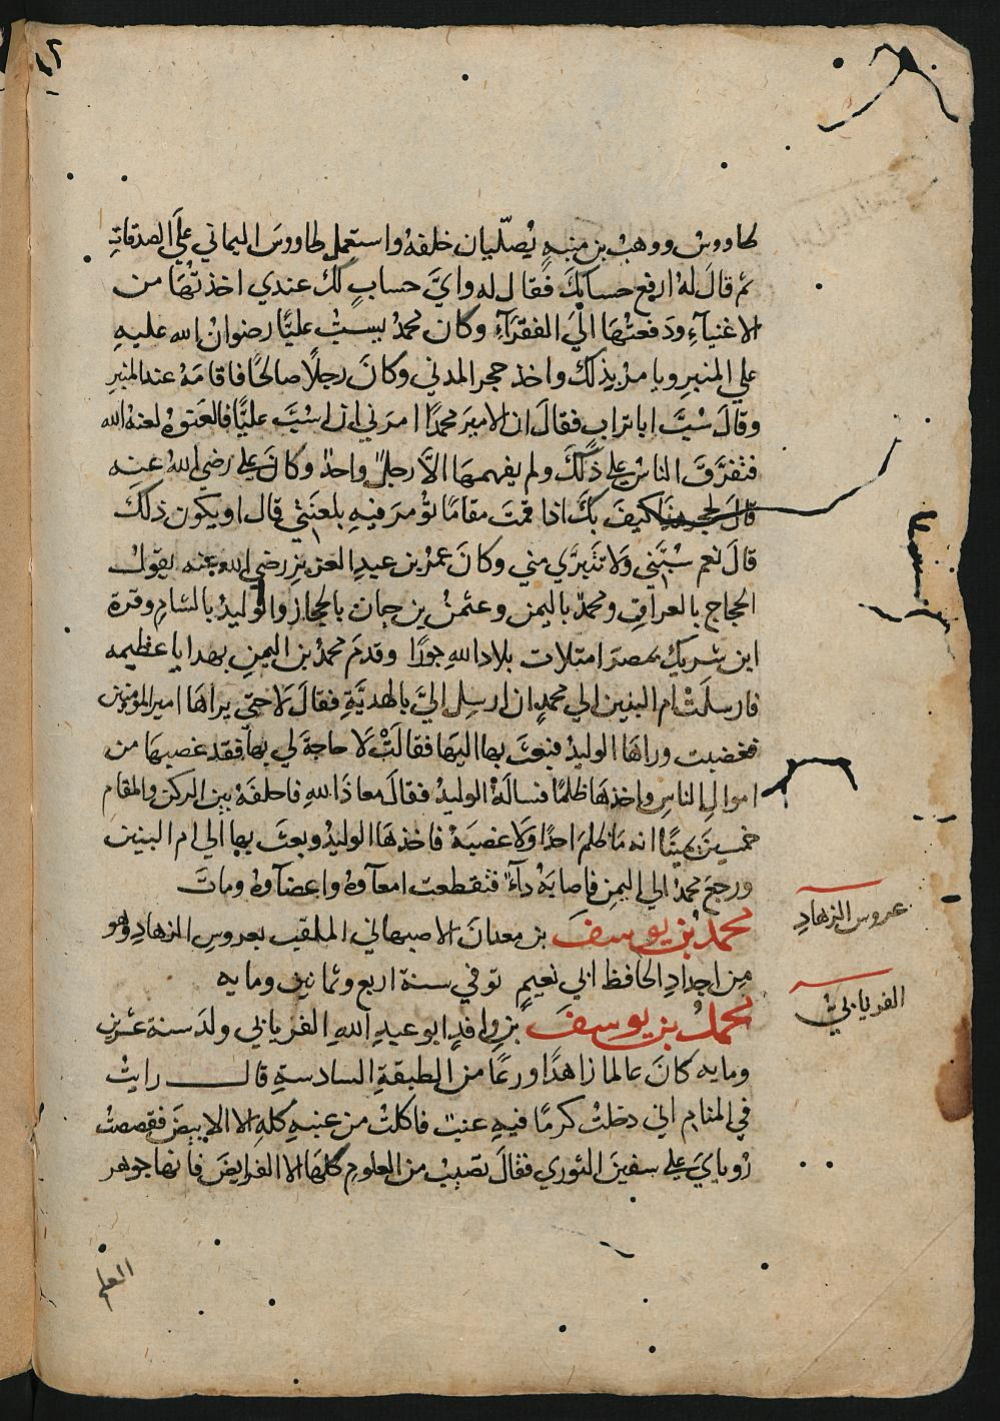 طاووسُ ووهبُ بن منبهٍ يُصلّيان خلفهُ واستعمل طاووسَ اليماني علَي الصدقاتِ
ثم قالَ لهُ ارفع حسابكَ فقال له وايَّ حسابٍ لك عندي اخذتُها من
الاغنياءِ ودفعتُهَا الَي الفقرَآءِ وكان محمدٌ يسبُّ عليًّا رضوانُ الله عليهِ
علي المنبرِ ويامرُ بذلك واخذ حجر المدني وكانَ رجلًا صالحًا فاقامَهُ عند المنبرِ
وقالَ سُبَّ ابا ترابٍ فقالَ ان الاميرَ محمدًا امرني ان اسُبَّ عليًّا فالعَنوهُ لعنهُ الله
فتفرَّقَ الناسُ علي ذلكَ ولم يفهمهَا الَّا رجلٌ واحدٌ وكانَ علي رضي اللهُ عنه
قالَ لحجرٍ كيفَ بكَ اذا قمتَ مقامًا تؤمَر فيهِ بلعنَتي قال اويكون ذلكَ
قالَ نعم سُبَّني وَلا تتبرَّي مني وكانَ عمرُ بن عبدِ العزيزِ رضي الله عنه يقولُ
الحجاج بالعراقِ ومحمدٌ باليمنِ وعثمنُ بن حبان بالحجازِ والوليدُ بالشامِ وقرة
ابن شريك بمصرَ امتلات بلادُ اللهِ جورًا وقدمَ محمدُ بن اليمنِ بهدايا عظيمه
فارسلَتْ ام البنين الي محمدٍ ان ارسِل اليَّ بالهديَّةِ فقالَ لا حتي يراهَا امير المؤمنين
فغضبت وراهَا الوليدُ فبعثَ بها اليهَا فقالَتْ لَا حاجةَ لي بها فقد غصبهَا من
اموالِ الناسِ واخذهَا ظلمًا فسالَهُ الوليدُ فقالَ معاذَ اللهِ فاحلفَهُ بين الركنِ والمقامِ
خمسينَ يمينًا انه مَا ظلمَ احدًا وَلا غصبَهُ فاخذهَا الوليدُ وبعثَ بها الي ام البنين
ورجعَ محمدٌ الي اليمنِ فاصابَهُ دآءٌ فتقطعت امعآؤهُ واعضآؤهُ وماتَ
محمدُ بن يوسفَ بن معدانَ الاصبهاني الملقب بعروسِ الزهادِ وهو
عروس الزهادِ
مِن اجدادِ الحافظ ابي نعيمٍ توفي سنة اربع وثمانين ومايه
محمدُ بن يوسفَ بن واقدٍ ابو عبدِ اللهِ الفريابي ولدَ سنة عشرين
الفريابيُّ
ومايه كانَ عالما زاهدًا ورعًا من الطبقةِ السادسةِ قال رايتُ
في المنام اني دخلتُ كرمًا فيهِ عنبٌ فاكلتُ من عنبهِ كلهِ الا الابيضَ فقصصتُ
رُوياي علي سفينَ الثوري فقالَ تصيبُ من العلومِ كلهَا الا الفرايضَ فانها جوهر
العلم